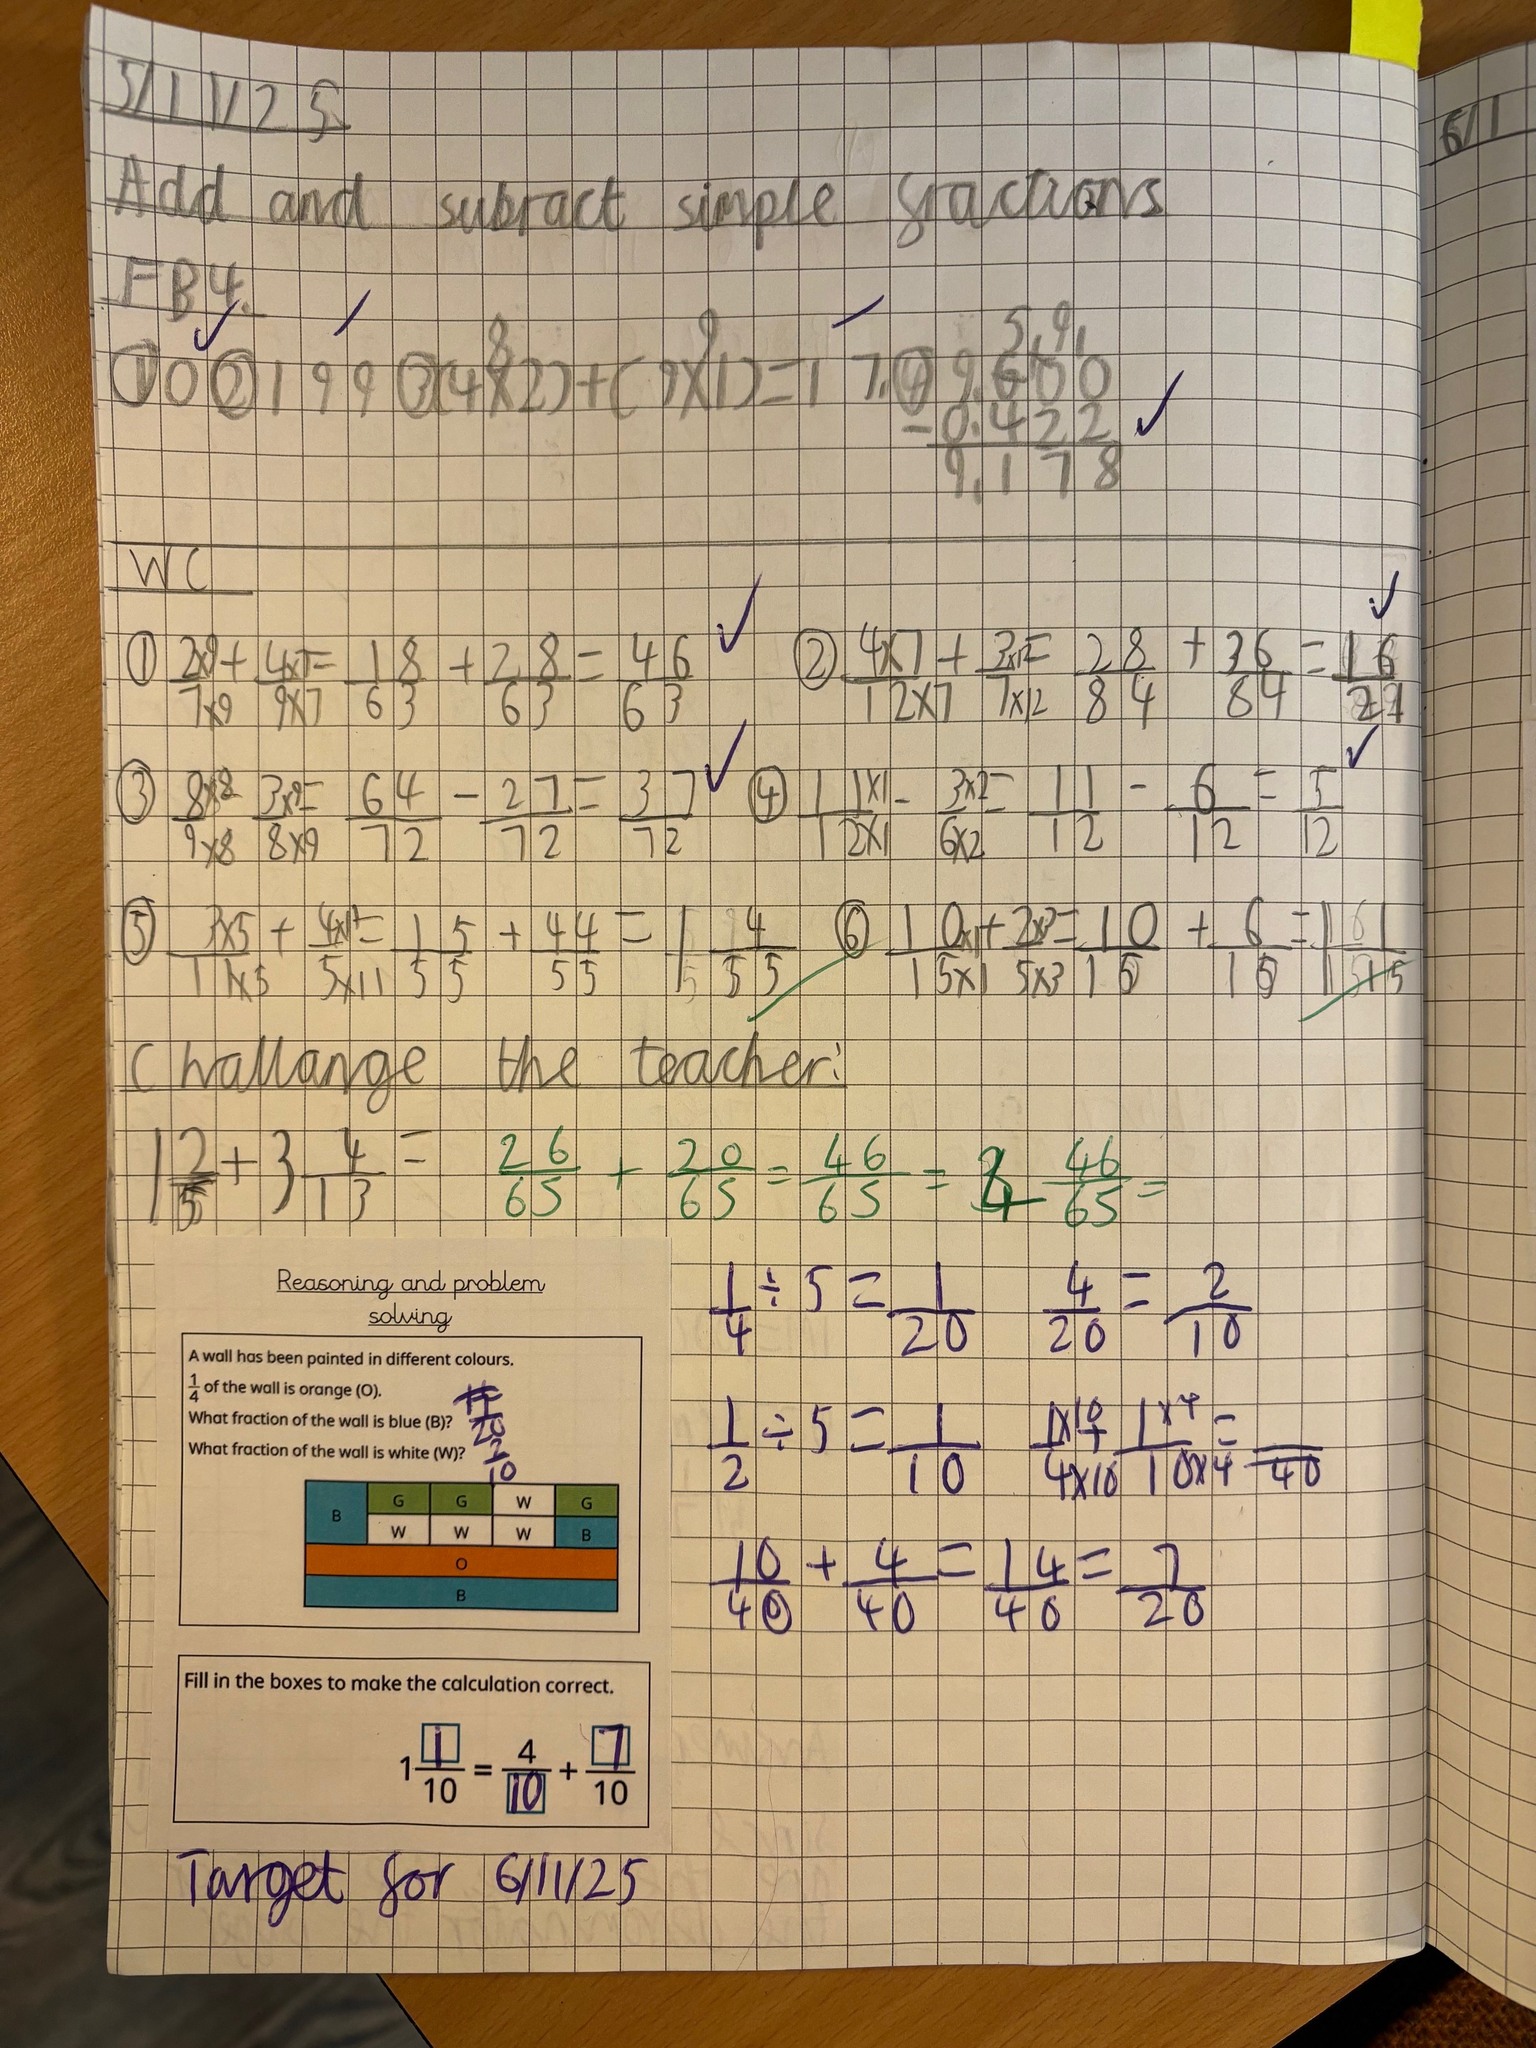 5/11/25
6/1
Add and subract simple fractions
FB4.
① 0 ② 199 ③ (4×2)+(9×1)=17. ④ 9.600
8 9 5, 9,
-0.422
9.178
WC
① 2×9/7×9 + 4×7/9×7 = 18/63 + 28/63 = 46/63
② 4×7/12×7 + 3×12/7×12 = 28/84 + 36/84 = 16/21
③ 8×8/9×8 - 3×9/8×9 = 64/72 - 27/72 = 37/72
④ 11×1/12×1 - 3×2/6×2 = 11/12 - 6/12 = 5/12
⑤ 3×5/11×5 + 4×11/5×11 = 15/55 + 44/55 = 1 4/55
⑥ 10×1/15×1 + 2×3/5×3 = 10/15 + 6/15 = 1 1/15
Challange the teacher:
1 2/5 + 3 4/13 = 26/65 + 20/65 = 46/65 = 4 46/65 =
Reasoning and problem
solving
A wall has been painted in different colours.
1/4 of the wall is orange (O).
What fraction of the wall is blue (B)?
20
What fraction of the wall is white (W)? 2/10
B G G W G
W W W B
O
B
1/4 ÷ 5 = 1/20 4/20 = 2/10
1/2 ÷ 5 = 1/10 1×10/4×10 + 1×4/10×4 = /40
10/40 + 4/40 = 14/40 = 7/20
Fill in the boxes to make the calculation correct.
1 1/10 = 4/10 + 7/10
Target for 6/11/25